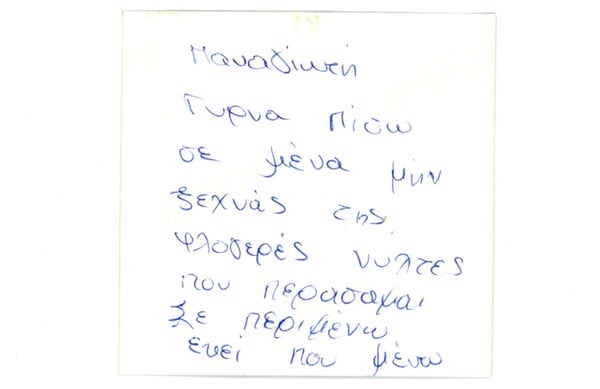 Παναγιωτη
Γυρνα πίσω
σε μένα μην
ξεχνάς της
φλογερές νυχτες
που περασαμαι
Σε περιμένω
εκεί που μένω